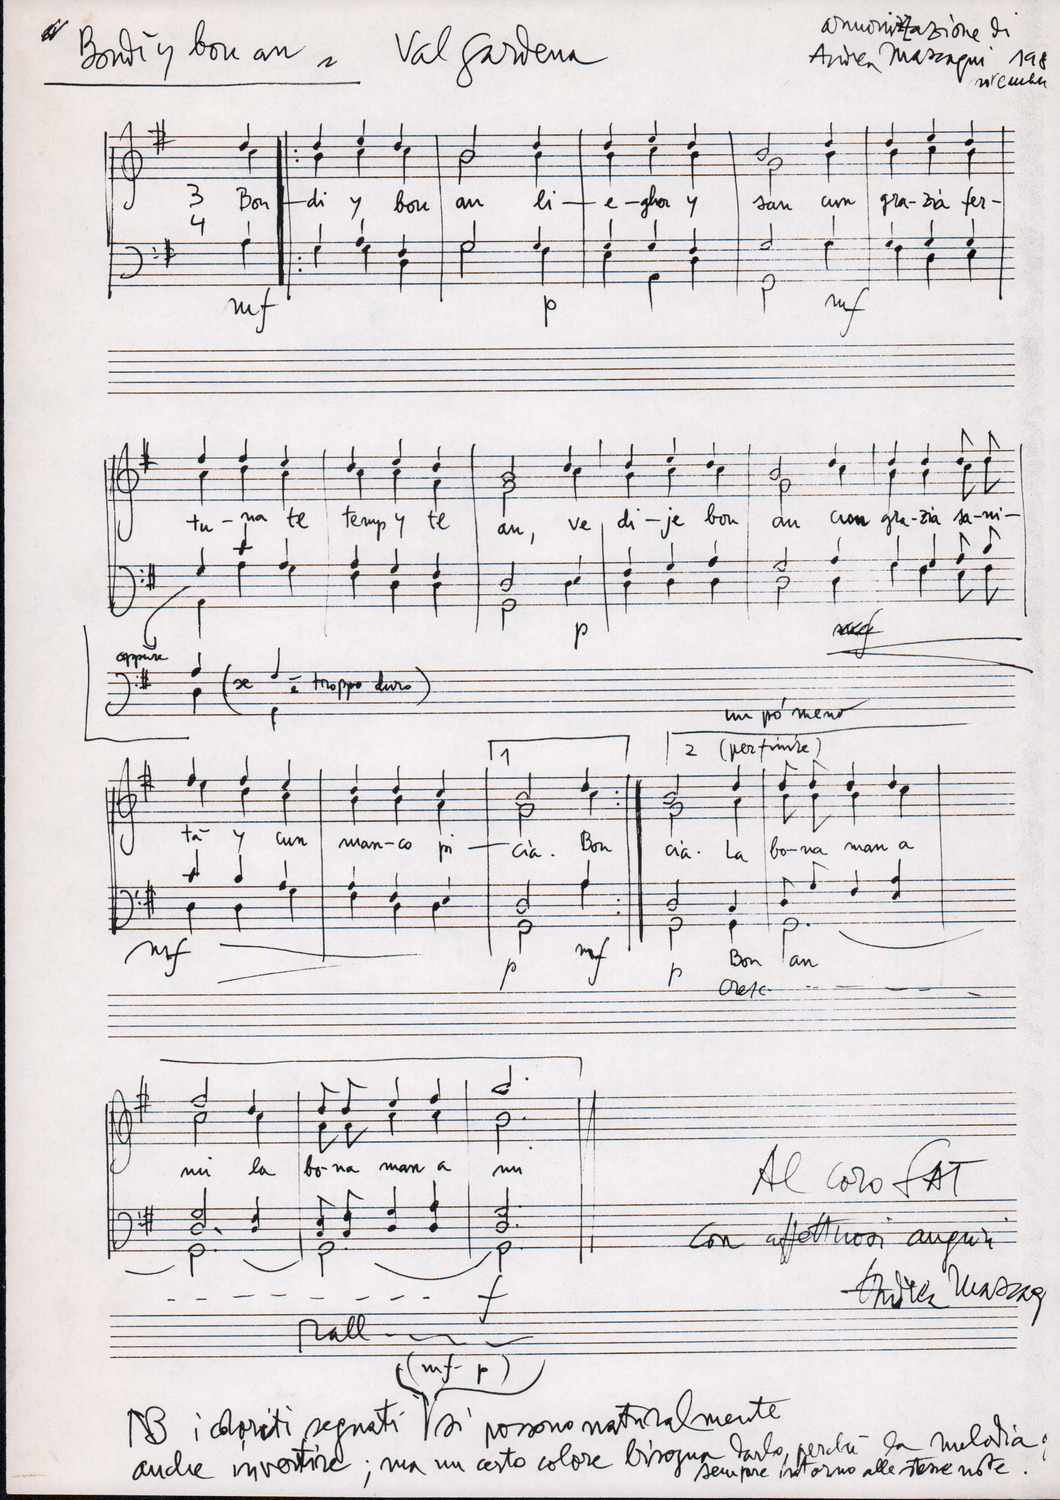 "Bondì y bon an" Val Gardena
armonizzazione di
Andrea Mascagni 198
novembre
3
4
Bon -di y bon an li - e -ghra y san cun gra-zia fer-
mf p mf
tu - na te temp y te an, ve di-je bon an cun gra-zia sa-ni-
p
oppure
(se è troppo duro)
un pó meno
1 2 (per finire)
tà y cun man-co pi - cià. Bon cià. La bo-na man a
mf p mf p Bon an
cresc.
mi la bo-na man a mi
Al coro SAT
con affettuosi auguri
Andrea Mascag
f
rall
(mf - p)
NB i coloriti segnati si possono naturalmente
anche invertire; ma un certo colore bisogna darlo, perché la melodia è
sempre intorno alle stesse note.